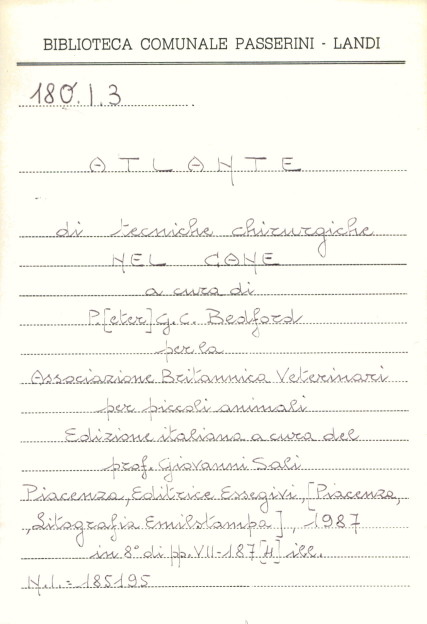 BIBLIOTECA COMUNALE PASSERINI - LANDI
180.I.3
ATLANTE
di tecniche chirurgiche
NEL CANE
a cura di
P.[eter] G.C. Bedford
per la
Associazione Britannica Veterinari
per piccoli animali
Edizione italiana a cura del
prof. Giovanni Sali
Piacenza, Editrice Essegivi, [Piacenza,
,Litografia Emilstampa], 1987
in 8° di pp. VII-187 [4] ill.
N.I.= 185195